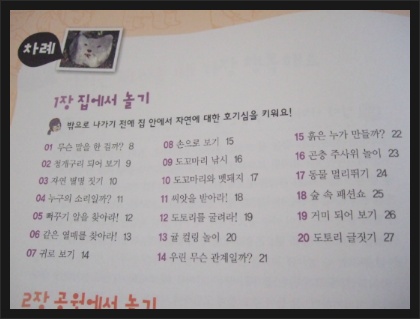 차례
1장 집에서 놀기
밖으로 나가기 전에 집 안에서 자연에 대한 호기심을 키워요!
01 무슨 말을 한 걸까? 8
02 청개구리 되어 보기 9
03 자연 별명 짓기 10
04 누구의 소리일까? 11
05 뻐꾸기 알을 찾아라! 12
06 같은 열매를 찾아라! 13
07 귀로 보기 14
08 손으로 보기 15
09 도꼬마리 낚시 16
10 도꼬마리와 멧돼지 17
11 씨앗을 받아라! 18
12 도토리를 굴려라! 19
13 귤 컬링 놀이 20
14 우린 무슨 관계일까? 21
15 흙은 누가 만들까? 22
16 곤충 주사위 놀이 23
17 동물 멀리뛰기 24
18 숲 속 패션쇼 25
19 거미 되어 보기 26
20 도토리 글짓기 27
2장 공원에서 놀기